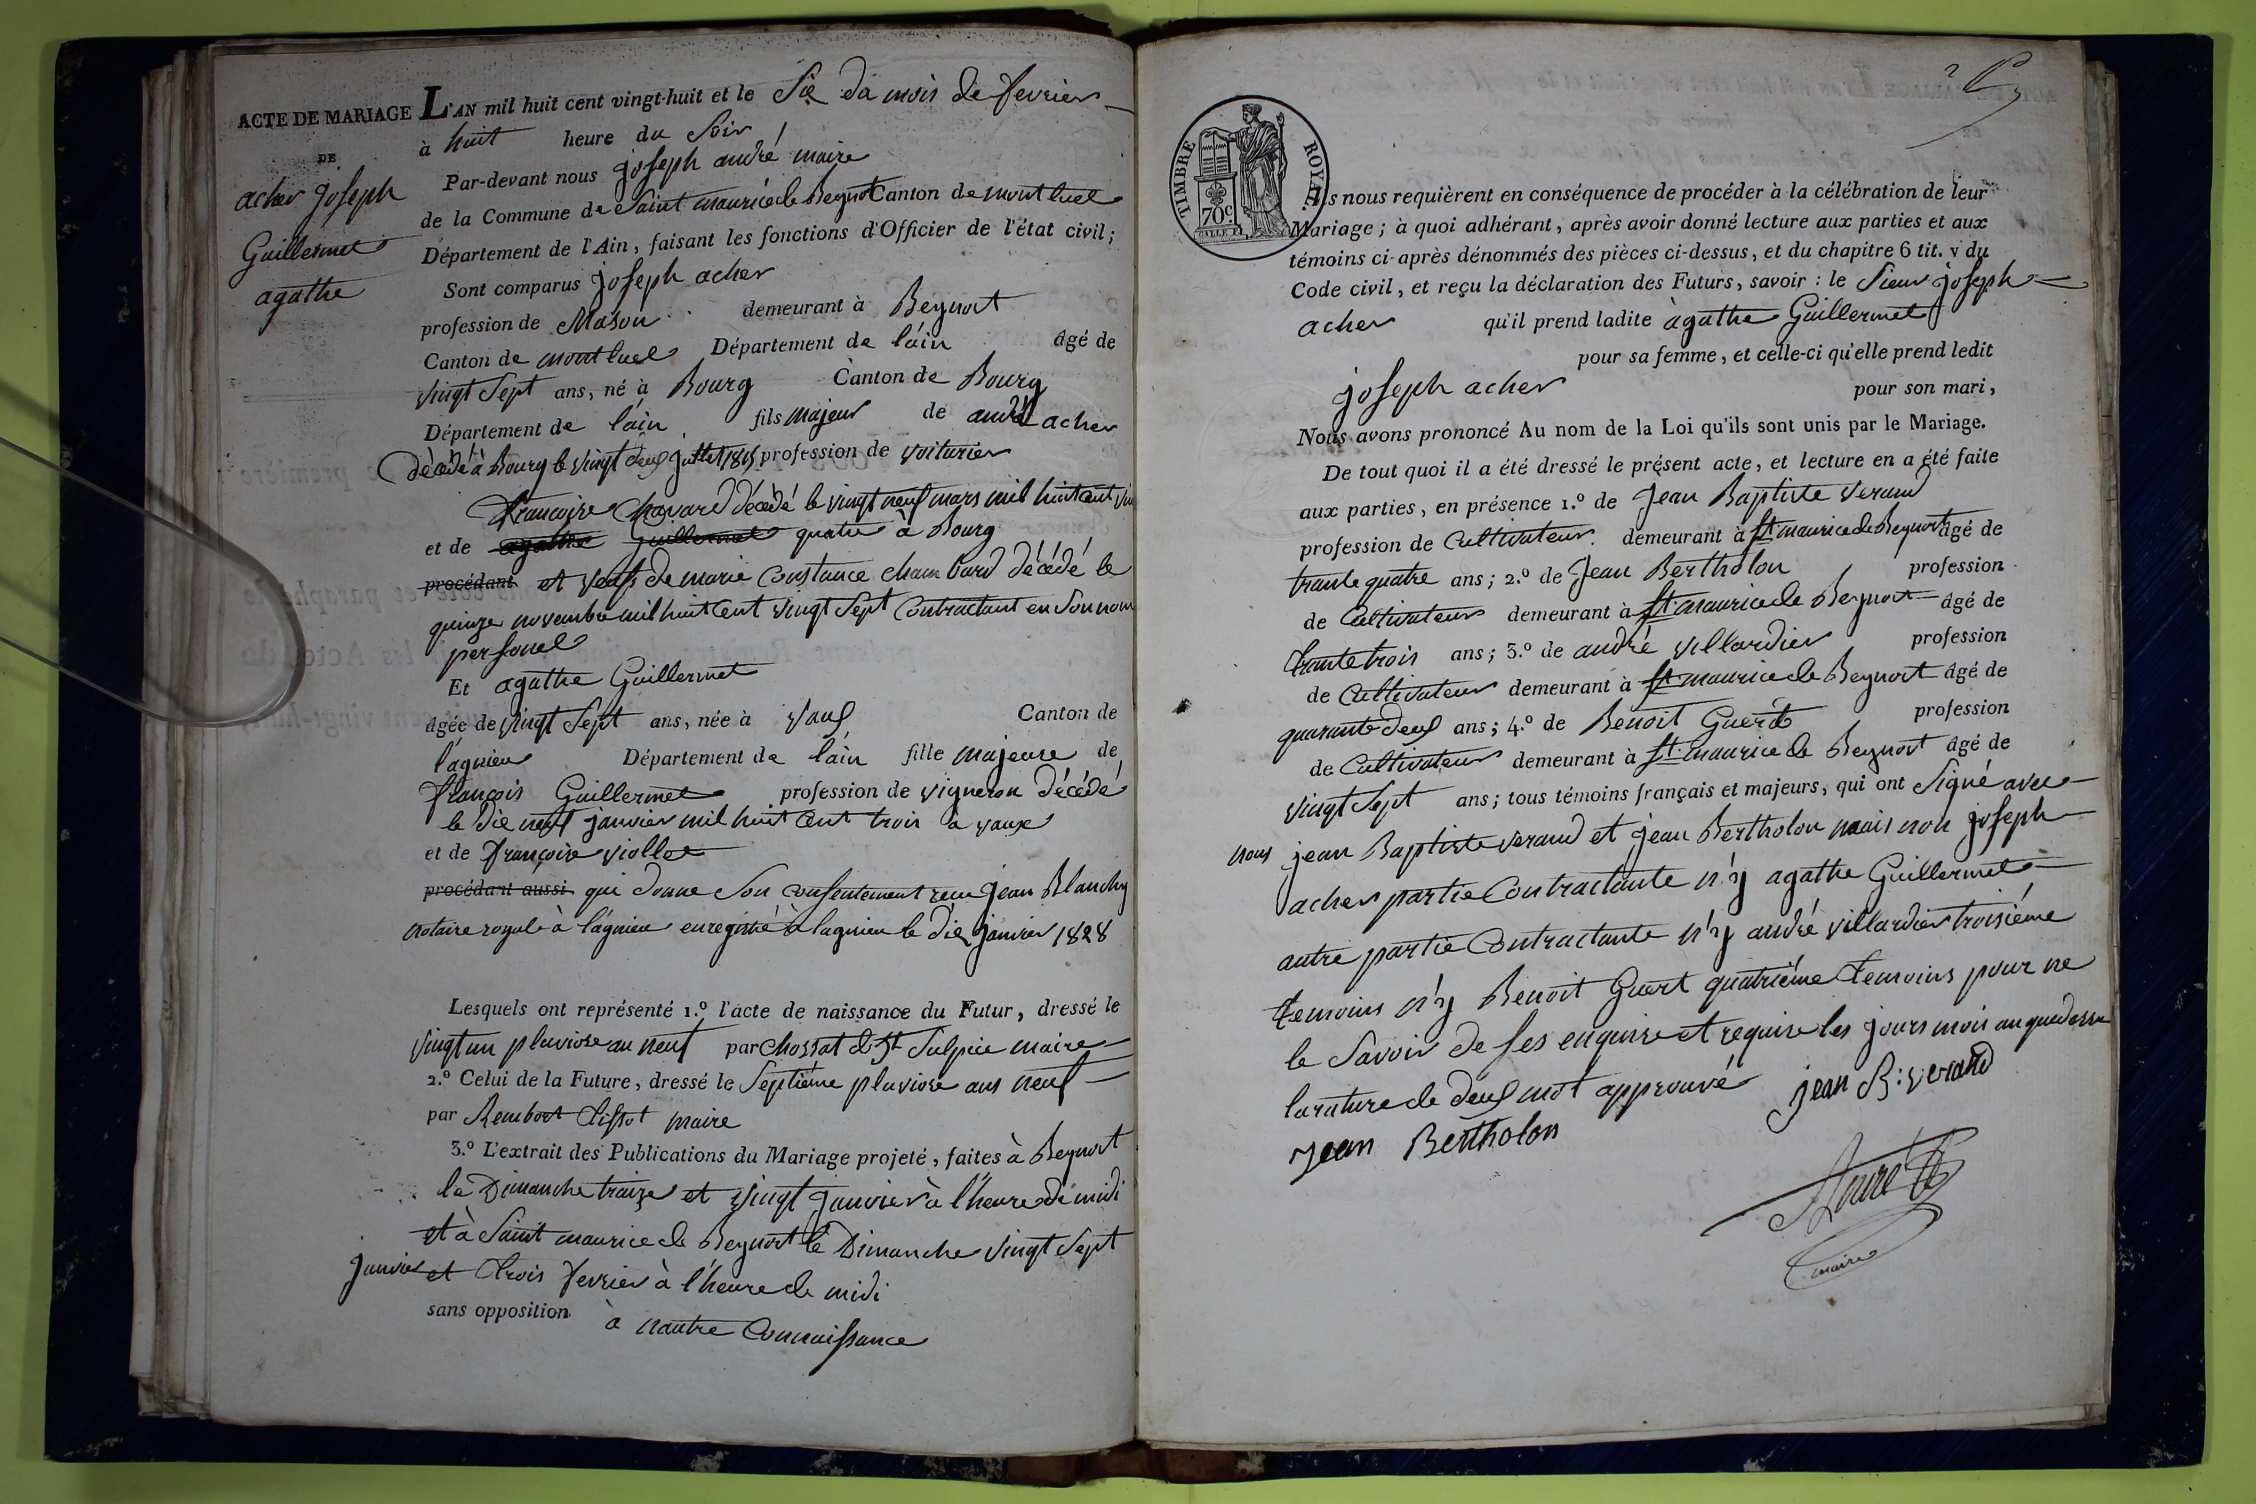 ACTE DE MARIAGE L'AN mil huit cent vingt-huit et le Six du mois de fevrier
DE
acher joseph
Guillermet
agathe
à huit heure du Soir
Par-devant nous joseph andré maire
de la Commune de Saint maurice de Beynost Canton de montluel
Département de l'Ain, faisant les fonctions d'Officier de l'état civil;
Sont comparus joseph acher
profession de Mason demeurant à Beynost
Canton de montluel Département de l'ain âgé de
vingt Sept ans, né à Bourg Canton de Bourg
Département de l'ain fils majeur de andré acher
décédé à Bourg le vingt deux juillet 1815 profession de voiturier
françoise Chavard décédé le vingt neuf mars mil huit cent vin
et de agathe Guillermet quatre à Bourg
procédant et veuf de marie Constance chambard décédé le
quinze novembre mil huit Cent vingt Sept Contractant en Son nom
personel
Et agathe Guillermet
âgée de vingt Sept ans, née à vaux Canton de
lagnieu Département de l'ain fille majeure de
françois Guillermet profession de vigneron décédé
le dix neuf janvier mil huit Cent trois à vaux
et de françoise viollet
procédant aussi qui donne Son consentement recu jean Blanchy
notaire royale à lagnieu enregistré à lagnieu le dix janvier 1828
Lesquels ont représenté 1.º l'acte de naissance du Futur, dressé le
vingt un pluviose an neuf par Chossat de St Sulpice maire
2.º Celui de la Future, dressé le Septième pluviose ans neuf
par Rembort tissot maire
3.º L'extrait des Publications du Mariage projeté, faites à Beynost
le Dimanche traize et vingt janvier à l'heure de midi
et à Saint maurice de Beynost le Dimanche vingt Sept
janvier et trois fevrier à l'heure de midi
sans opposition à nautre Connaissance
TIMBRE ROYAL
70c
Ils nous requièrent en conséquence de procéder à la célébration de leur
Mariage; à quoi adhérant, après avoir donné lecture aux parties et aux
témoins ci-après dénommés des pièces ci-dessus, et du chapitre 6 tit. v du
Code civil, et reçu la déclaration des Futurs, savoir: le Sieur joseph
acher qu'il prend ladite agathe Guillermet
pour sa femme, et celle-ci qu'elle prend ledit
joseph acher pour son mari,
Nous avons prononcé Au nom de la Loi qu'ils sont unis par le Mariage.
De tout quoi il a été dressé le présent acte, et lecture en a été faite
aux parties, en présence 1.º de Jean Baptiste verand
profession de Cultivateur demeurant à St maurice de Beynost âgé de
trante quatre ans; 2.º de Jean Bertholon profession
de Cultivateur demeurant à St maurice de Beynost âgé de
trante trois ans; 3.º de andré villardier profession
de Cultivateur demeurant à St maurice de Beynost âgé de
quarante deux ans; 4.º de Benoit Guert profession
de Cultivateur demeurant à St maurice de Beynost âgé de
vingt Sept ans; tous témoins français et majeurs, qui ont Signé avec
nous jean Baptiste verand et jean Bertholon mais non joseph
acher partie Contractante n'y agathe Guillermet
autre partie Contractante n'y andré villardier troisiéme
temoins n'y Benoit Guert quatriéme temoins pour ne
le Savoir de Ses enquire et require les jours mois an que dessu
larature de deux mot approuvé jean B: verand
Jean Bertholon
maire